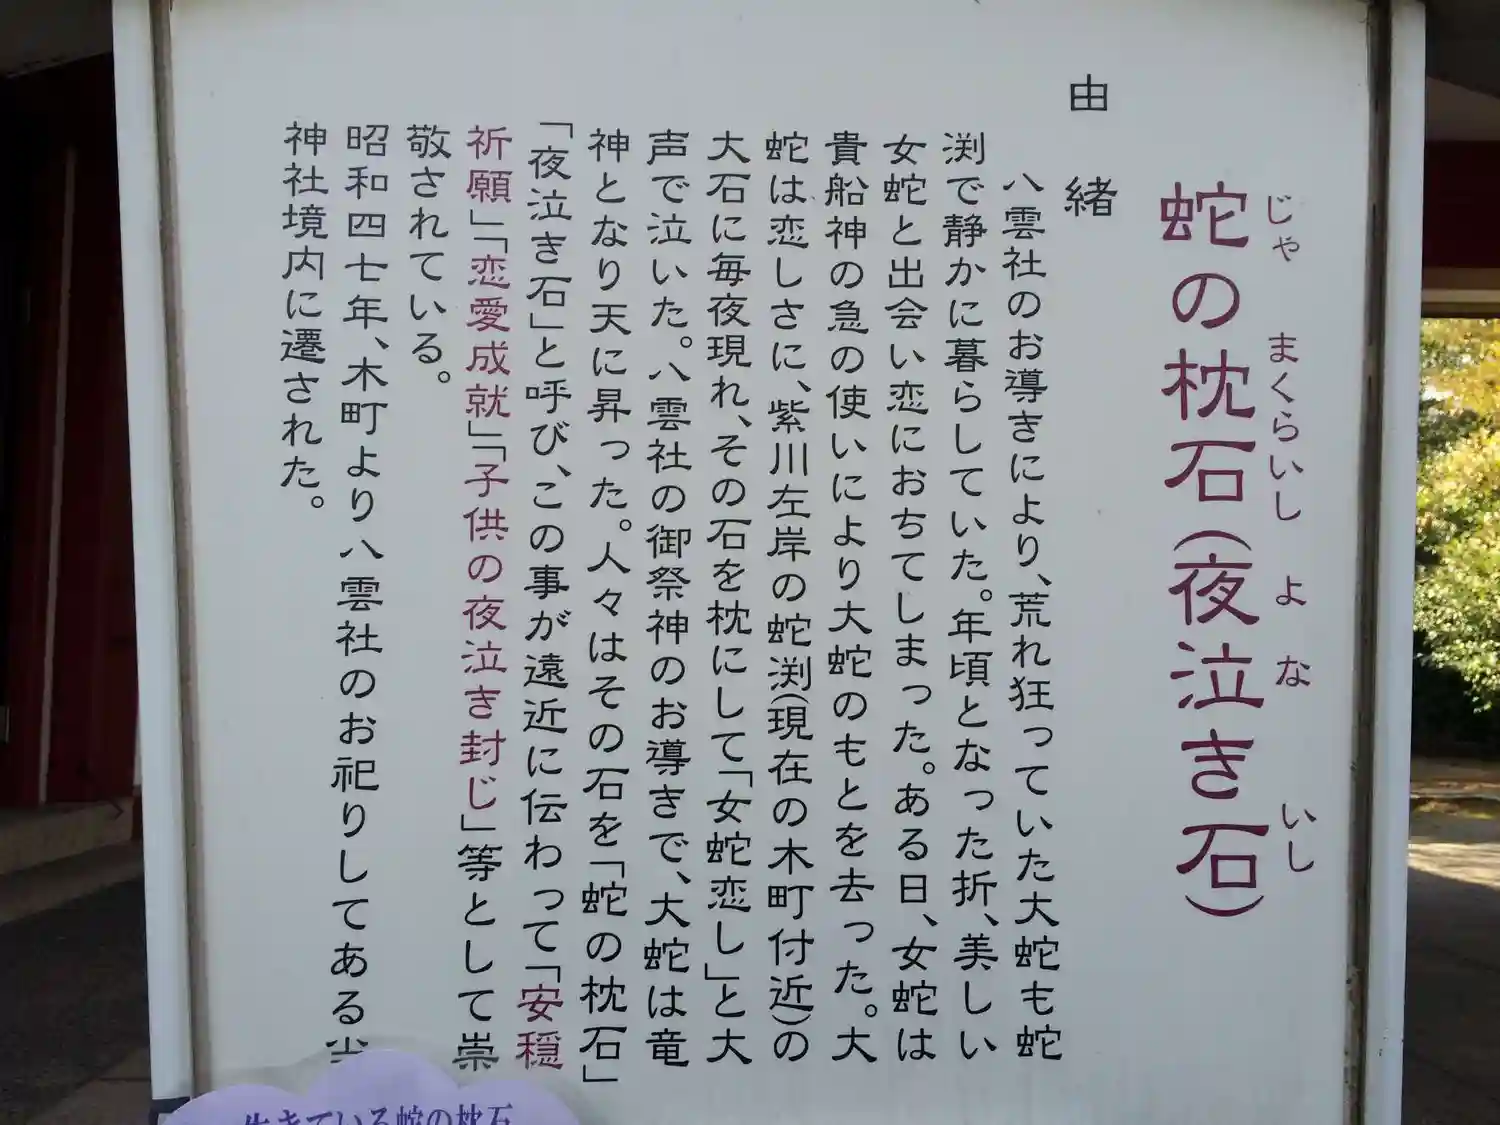 蛇の枕石(夜泣き石)
じゃ まくらいし よな いし
由緒
八雲社のお導きにより、荒れ狂っていた大蛇も蛇
渕で静かに暮らしていた。年頃となった折、美しい
女蛇と出会い恋におちてしまった。ある日、女蛇は
貴船神の急の使いにより大蛇のもとを去った。大
蛇は恋しさに、紫川左岸の蛇渕(現在の木町付近)の
大石に毎夜現れ、その石を枕にして「女蛇恋し」と大
声で泣いた。八雲社の御祭神のお導きで、大蛇は竜
神となり天に昇った。人々はその石を「蛇の枕石」
「夜泣き石」と呼び、この事が遠近に伝わって「安穏
祈願」「恋愛成就」「子供の夜泣き封じ」等として崇
敬されている。
昭和四七年、木町より八雲社のお祀りしてある当
神社境内に遷された。
生きている蛇の枕石